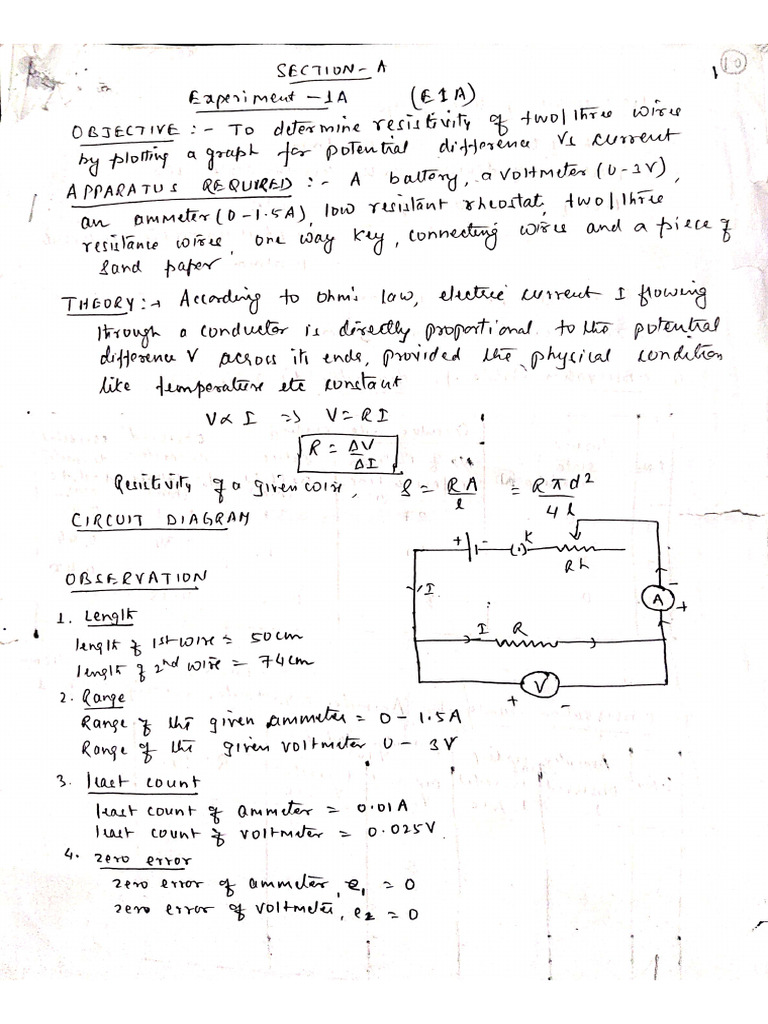 10
SECTION-A
Experiment -1A (E1A)
OBJECTIVE :- To determine resistivity of two/three wires
by plotting a graph for potential difference Vs current
APPARATUS REQUIRED :- A battery, a voltmeter (0-3V),
an ammeter (0-1.5A), low resistant rheostat, two/three
resistance wires, one way key, connecting wires and a piece of
sand paper
THEORY:→ According to ohm's law, electric current I flowing
through a conductor is directly proportional to the potential
difference V across its ends, provided the physical condition
like temperature etc constant
V∝ I => V=RI
R = ΔV/ΔI
Resistivity of a given wire, ρ = RA/l = Rπd²/4l
CIRCUIT DIAGRAM
+ - K
Rh
I
A
-
+
I R
V
+ -
OBSERVATION
1. Length
length of 1st wire = 50cm
length of 2nd wire = 74cm
2. Range
Range of the given ammeter = 0 - 1.5A
Range of the given voltmeter 0 - 3V
3. least count
least count of ammeter = 0.01A
least count of voltmeter = 0.025V
4. zero error
zero error of ammeter, e₁ = 0
zero error of voltmeter, e₂ = 0